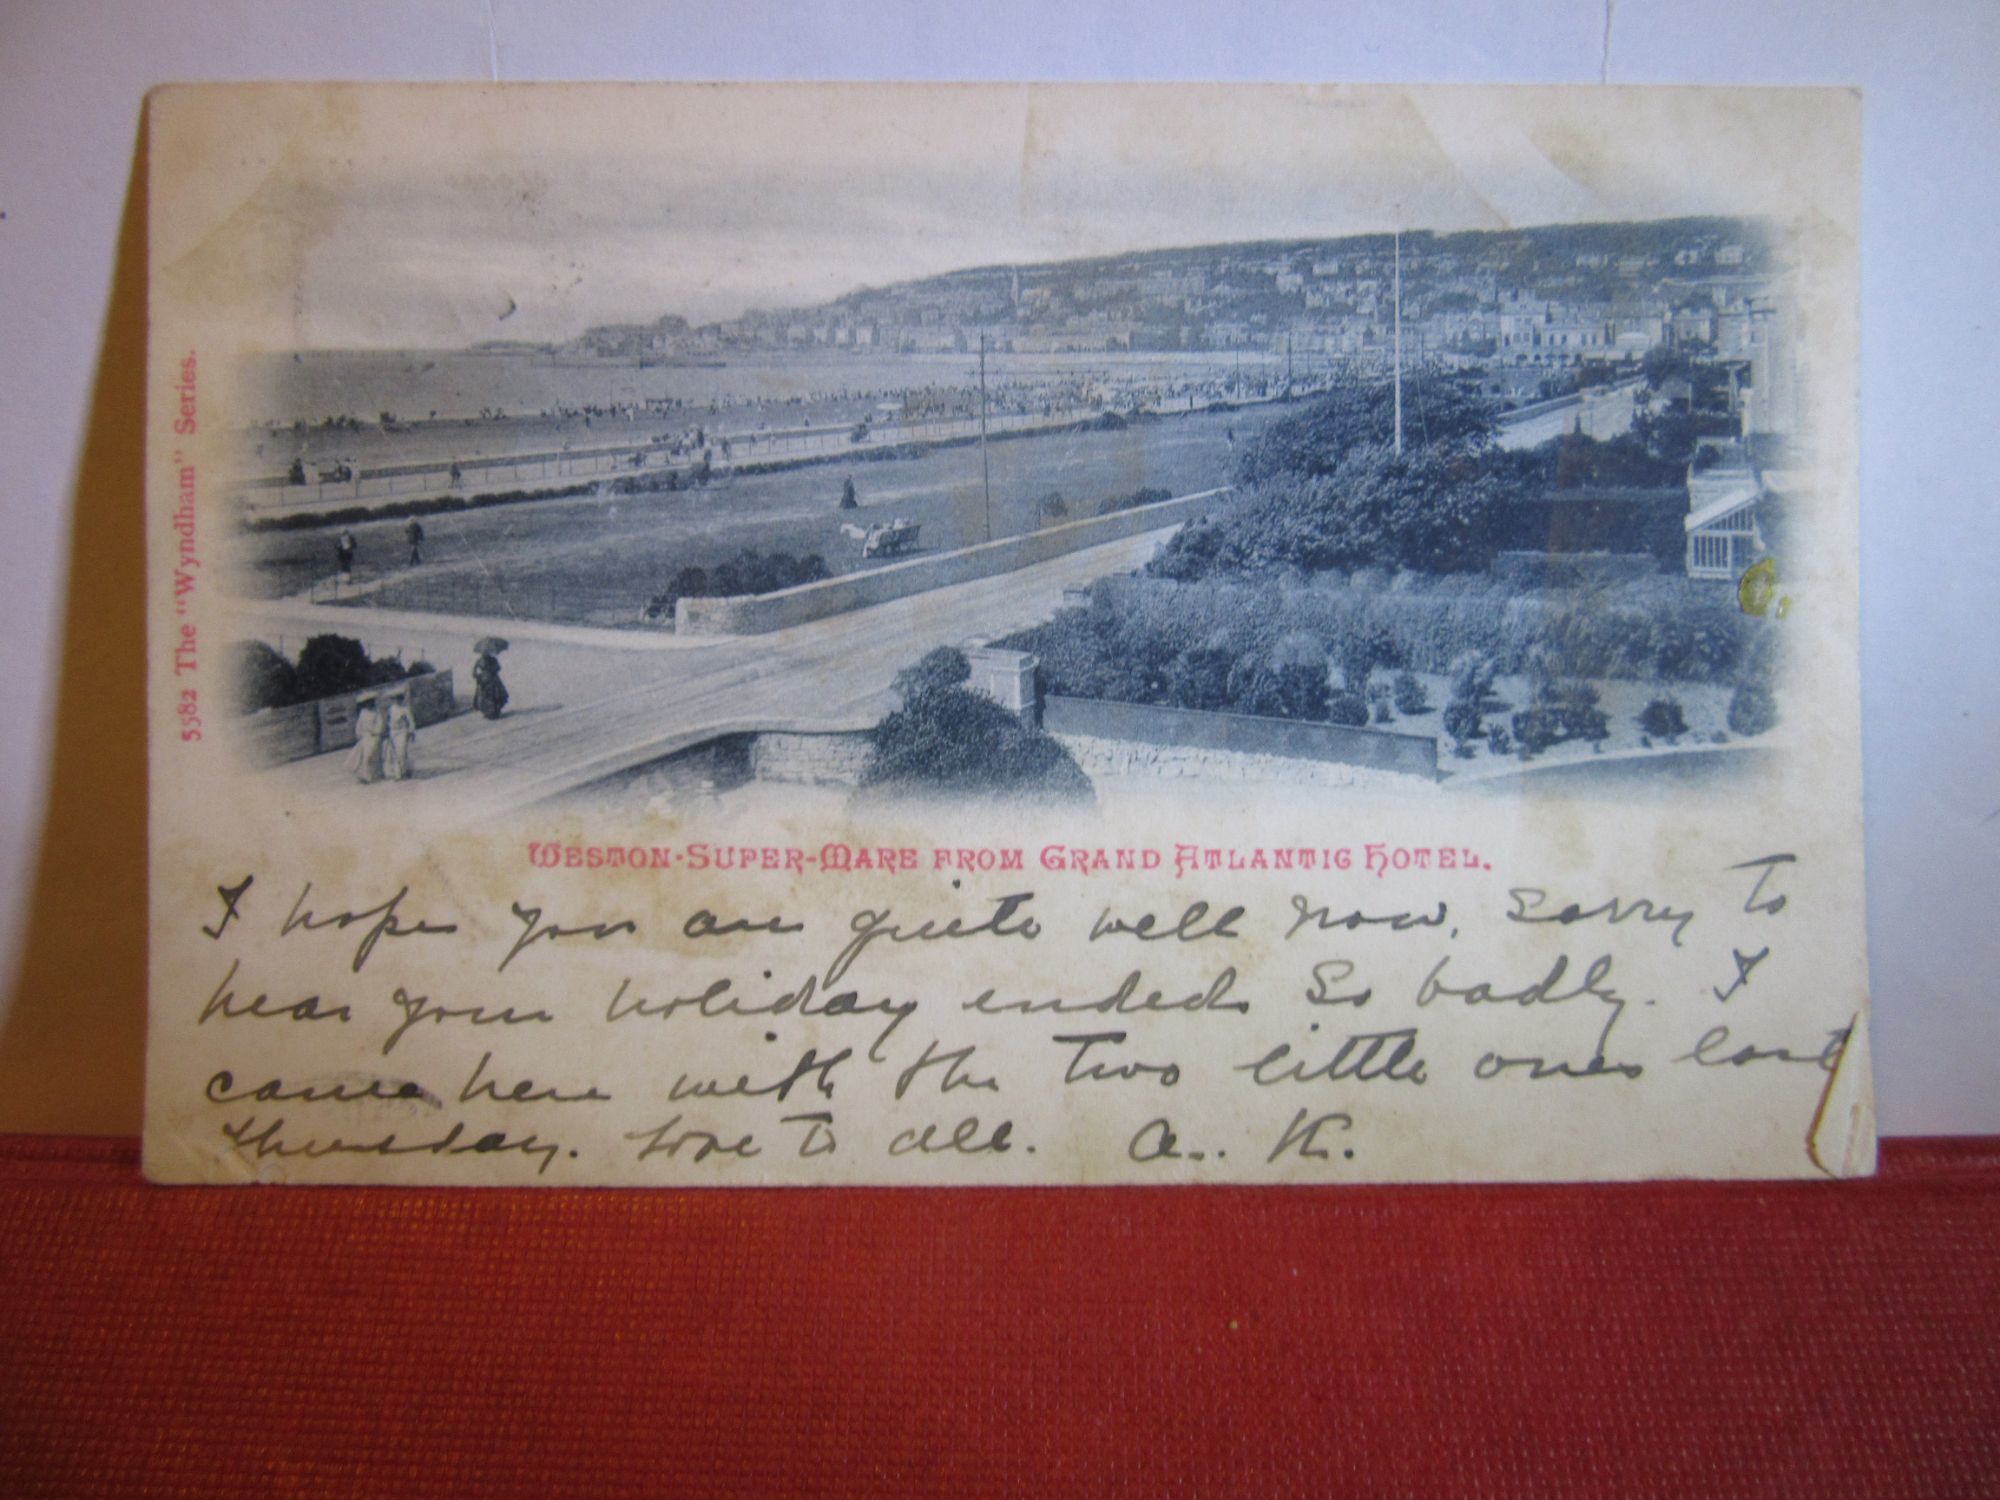 5582 The "Wyndham" Series.
Weston-Super-Mare from Grand Atlantic Hotel.
I hope you are quite well now, sorry to
hear your holiday ended so badly. I
came here with the two little ones last
thursday. Love to all. A. K.